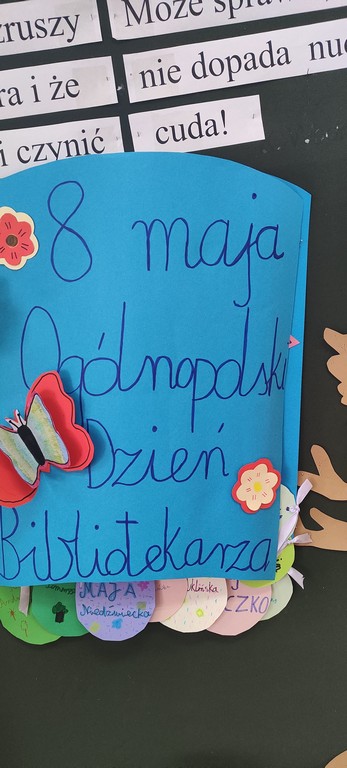 zruszy Może
ra i że nie dopada
i czynić cuda!
8 maja
Ogólnopolski
Dzień
Bibliotekarza
MAJA
Niedźwiecka